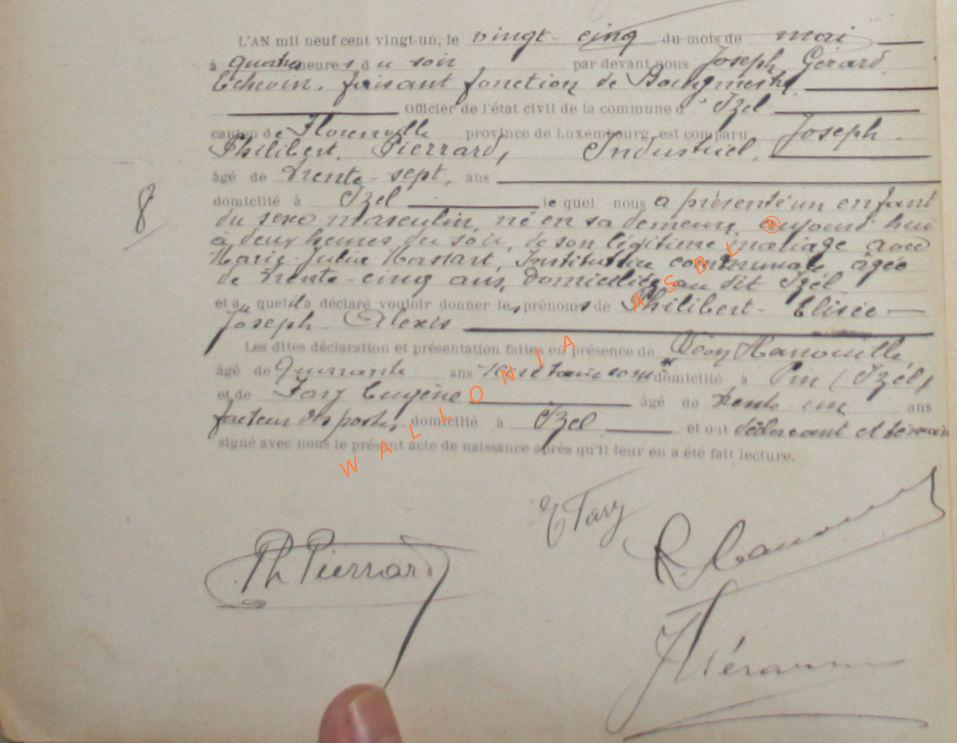 L'AN mil neuf cent vingt-un, le vingt-cinq du mois de mai
à quatre heures du soir par devant nous Joseph Gérard,
Echevin, faisant fonction de Bourgmestre
Officier de l'état civil de la commune d'Izel
canton de Florenville province de Luxembourg, est comparu Joseph
Philibert, Pierrard, Industriel,
âgé de trente-sept, ans
domicilié à Izel le quel nous a présenté un enfant
du sexe masculin, né en sa demeure, aujourd'hui
à deux heures du soir, de son légitime mariage avec
Marie-Julia Hassart, Institutrice communale âgée
de trente-cinq ans, domiciliée au dit Izel
et au quel il a déclaré vouloir donner les prénoms de Philibert-Elisée-
Joseph-Alexis
Les dites déclaration et présentation faites en présence de
âgé de Quarante ans domicilié à Pin (Izel)
et de Tary Eugène âgé de trente-un ans
facteur des postes, domicilié à Izel et ont déclarant et témoins
signé avec nous le présent acte de naissance après qu'il leur en a été fait lecture.
8
WALLONIA ASBL ®
E Tary
Ph Pierrard